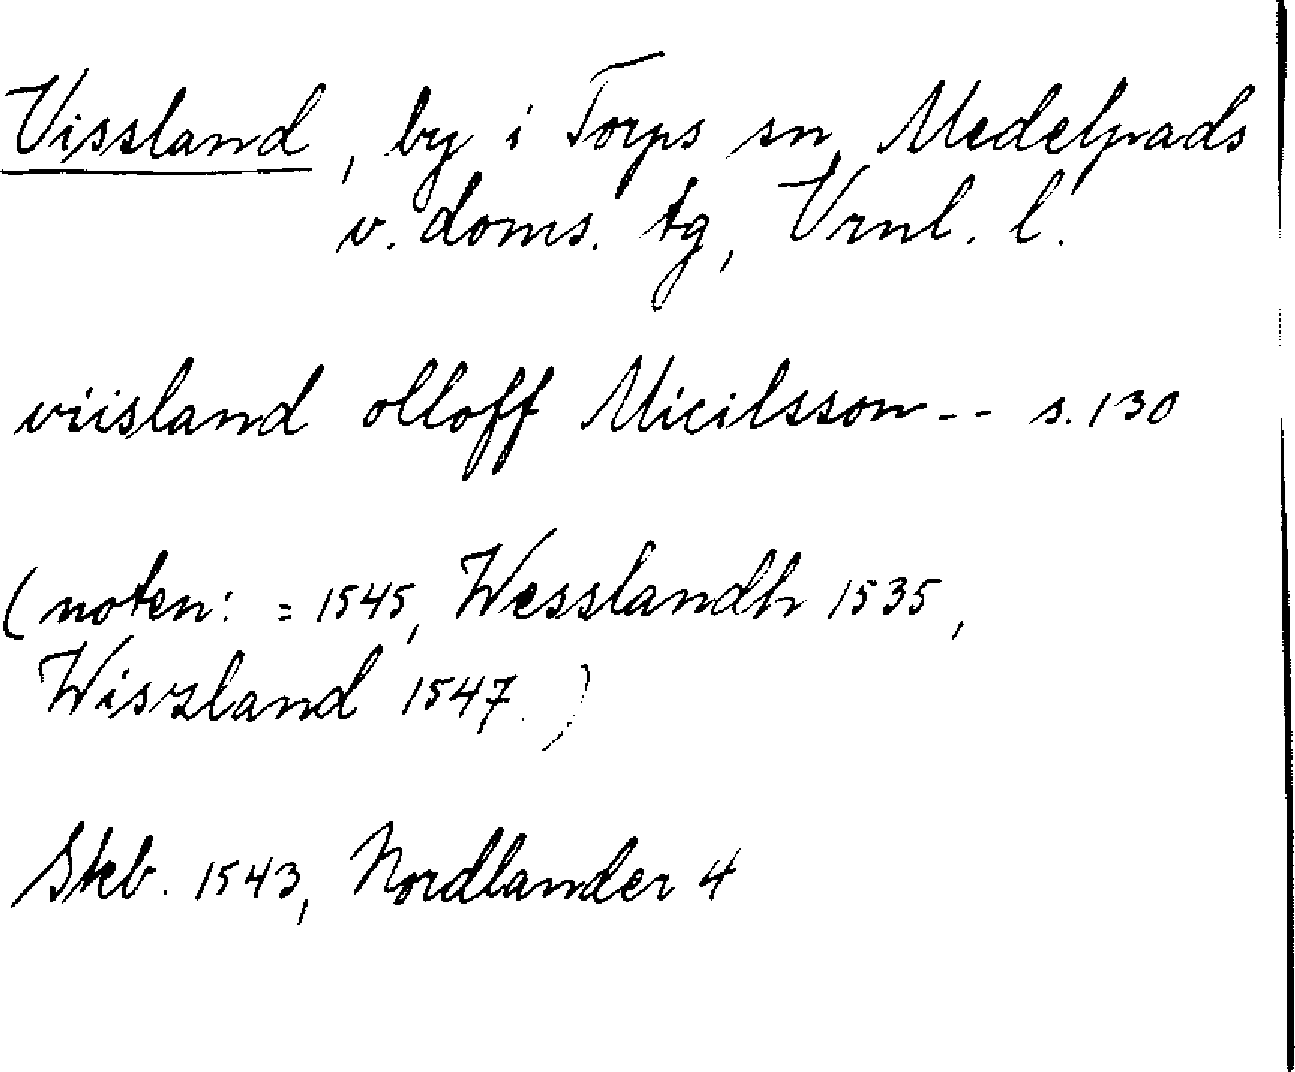 Vissland, by i Torps sn, Medelpads
v. doms. tg, Vrnl. l.
viisland olloff Micilsson-- s. 130
(noten: = 1545, Wesslandh 1535,
Wiszland 1547.)
Skb. 1543, Nordlander 4